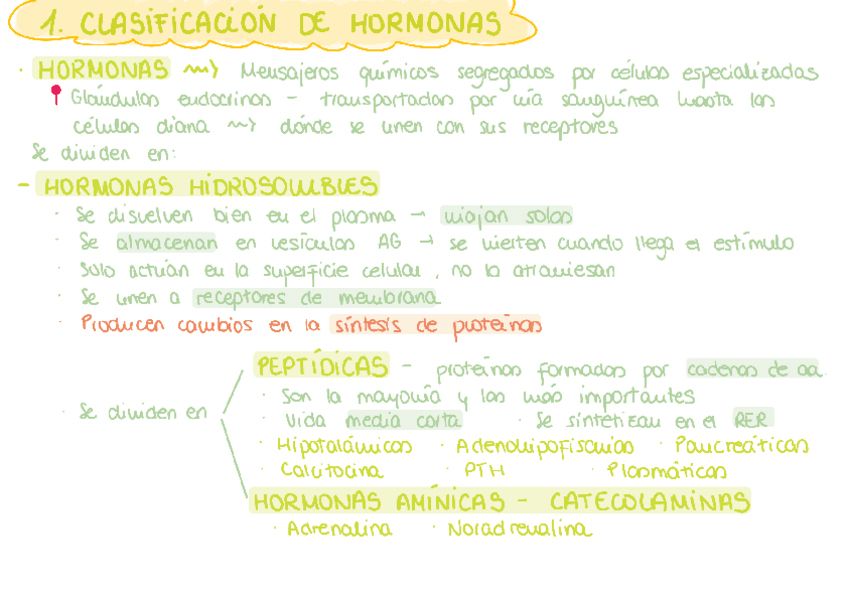 1. CLASIFICACIÓN DE HORMONAS
· HORMONAS ⇝ Mensajeros químicos segregados por células especializadas
Glándulas endocrinas - transportadas por vía sanguínea hasta las
células diana ⇝ dónde se unen con sus receptores
Se dividen en:
- HORMONAS HIDROSOLUBLES
· Se disuelven bien en el plasma → viajan solas
· Se almacenan en vesículas AG → se vierten cuando llega el estímulo
· Solo actúan en la superficie celular, no la atraviesan
· Se unen a receptores de membrana
· Producen cambios en la síntesis de proteínas
· Se dividen en
PEPTÍDICAS - proteínas formadas por cadenas de aa.
· Son la mayoría y las más importantes
· Vida media corta · Se sintetizan en el RER
· Hipotalámicas · Adenohipofisarias · Pancreáticas
· Calcitocina · PTH · Plasmáticas
HORMONAS AMÍNICAS - CATECOLAMINAS
· Adrenalina · Noradrenalina